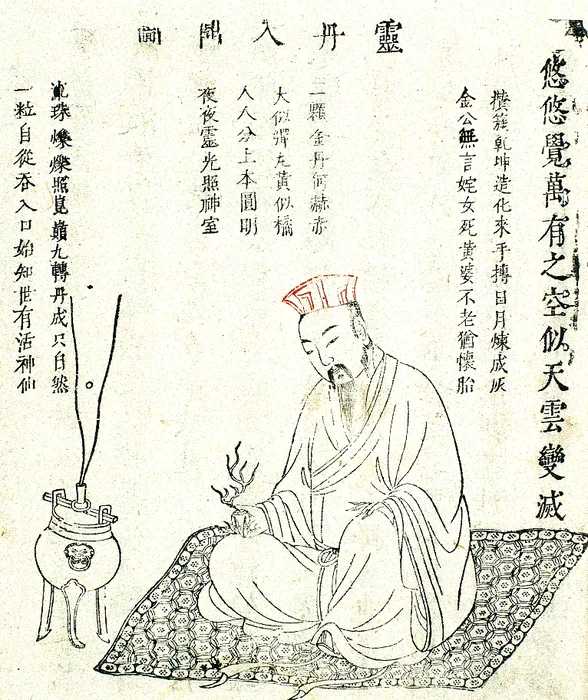 悠悠覺萬有之空似天雲變滅
靈丹入鼎圖
攢簇乾坤造化來手摶日月煉成灰
金公無言姹女死黃婆不老猶懷胎
一顆金丹何赫赤
大似彈丸黃似橘
人人分上本圓明
夜夜靈光照神室
珠爍爍照崑巔九轉丹成只自然
一粒自從吞入口始知世有活神仙